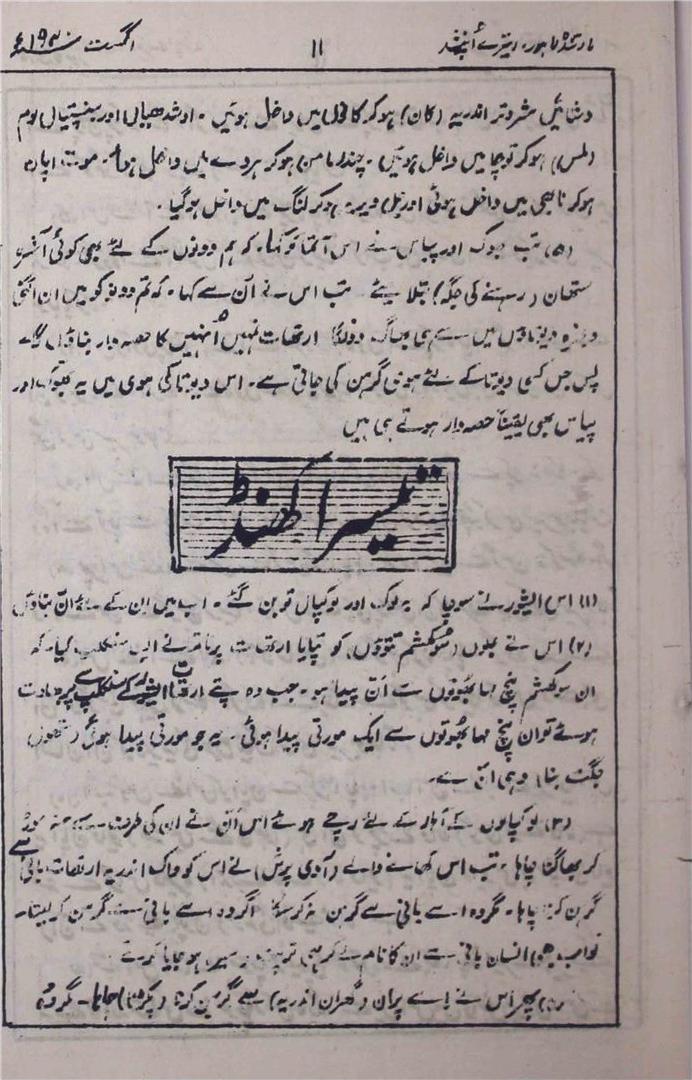 مارتنڈ لاہور۔ ایترے اُپنشد ۱۱ اگست ۱۹۳۰ء
دشائیں شروتر اندریہ (کان) ہوکر کانوں میں داخل ہوئیں۔ اوشدھیاں اور بنسپتیاں لوم
(لمس) ہوکر توچا میں داخل ہوئیں۔ چندرما من ہوکر ہردے میں داخل ہوا۔ موت اپان
ہوکر نابھی میں داخل ہوئی اور جل ویریہ ہوکر لنگ میں داخل ہوگیا۔
(۵) تب بھوک اور پیاس نے اس آتما کو کہا۔ کہ ہم دونوں کے لئے بھی کوئی
ستھان (رہنے کی جگہ) بتلائیے۔ تب اس نے اُن سے کہا۔ کہ تم دونو کو میں ان اگنی
وغیرہ دیوتاؤں میں سے ہی بھاگ دونگا ارتھات تمہیں اُنہیں کا حصہ دار بناؤں گا۔
پس جس کسی دیوتا کے لئے ہوی گرہن کی جاتی ہے۔ اس دیوتا کی ہوی میں یہ بھوک اور
پیاس بھی یقیناً حصہ دار ہوتے ہی ہیں
تیسرا کھنڈ
(۱) اس ایشور نے سوچا کہ یہ لوک اور لوکپال تو بن گئے۔ اب میں ان کے لئے اَنّ بناؤں
(۲) اس نے جلوں (سوکشم تتوؤں) کو تپایا ارتھات پرماتما نے سنکلپ کیا۔ کہ
ان سوکشم پنچ مہا بھوتوں سے اَنّ پیدا ہو۔ جب وہ تپے ارتھات ایشور کے سنکلپ سے
ہوئے تو ان پنچ مہا بھوتوں سے ایک مورتی پیدا ہوئی۔ یہ جو مورتی پیدا ہوئی
جگت بنا) وہی اَنّ ہے۔
(۳) لوکپالوں کے آہار کے لئے رچے ہوئے اس اَنّ نے ان کی طرف سے منہ موڑ
کر بھاگنا چاہا۔ تب اس کھانے والے (آدی پرش) نے اس کو واک اندریہ ارتھات بانی سے
گرہن کرنا چاہا۔ مگر وہ اسے بانی سے گرہن نہ کر سکا اگر وہ اسے بانی سے گرہن کر لیتا۔
تو اب بھی انسان بانی سے ان کا نام لے کر ہی ترپت سیر ہو جایا کرتے۔
پھر اُس نے اسے پران (گھران اندریہ) سے گرہن کرنا (پکڑنا) چاہا۔ مگر وہ